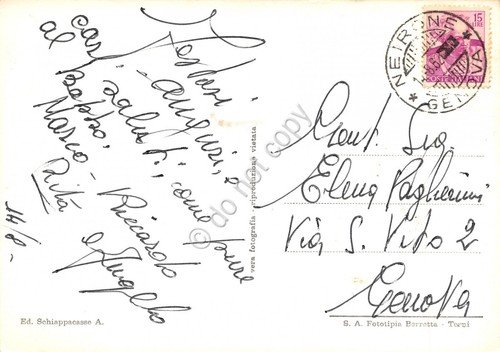 Festosi
auguri, e
cari saluti come pure
al Babbo,
Marco Riccardo
Rita e Angelo
14/8-
Ed. Schiappacasse A.
vera fotografia - riproduzione vietata
15
LIRE
NEIRONE
GENOVA
Gent. Sig.
Elena Paglierini
Via S. Vito 2
Genova
S. A. Fototipia Berretta - Terni
do not copy